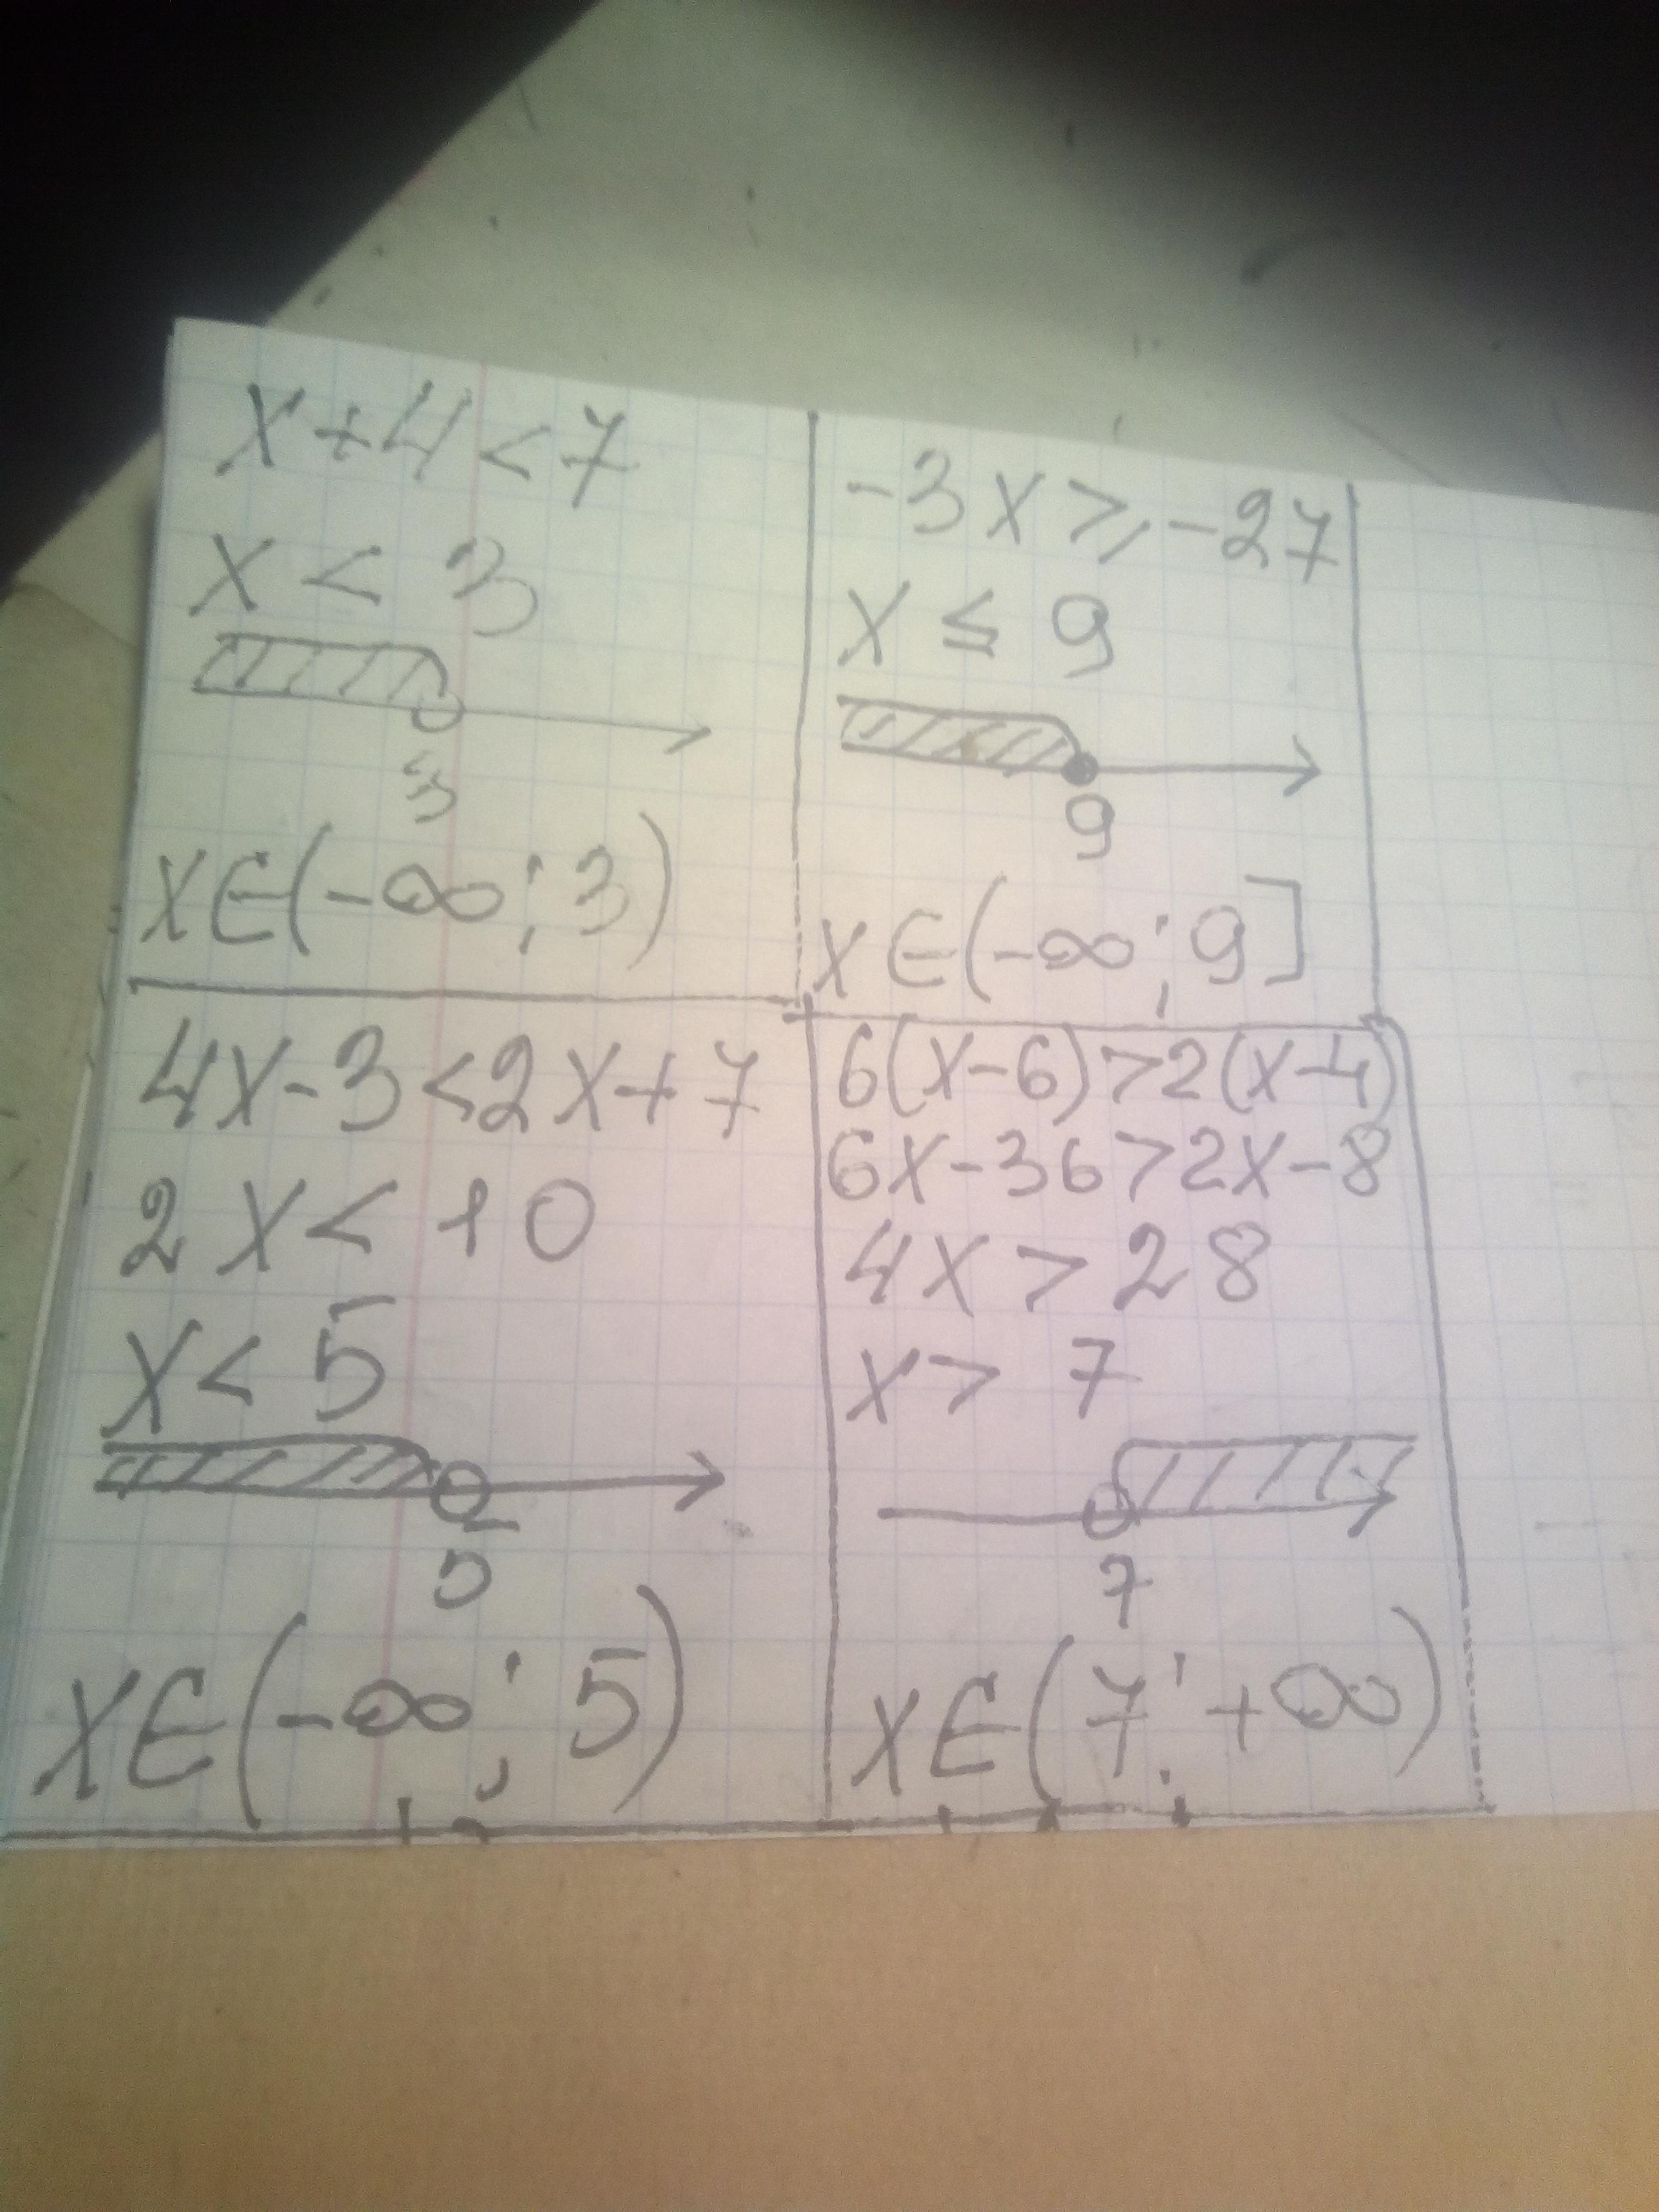 x+4<7
x < 3
3
x∈(-∞; 3)
-3x ⩾ -27
x ≤ 9
9
x∈(-∞; 9]
4x-3<2x+7
2x < 10
x < 5
5
x∈(-∞; 5)
6(x-6)>2(x-4)
6x-36>2x-8
4x > 28
x > 7
7
x∈(7; +∞)